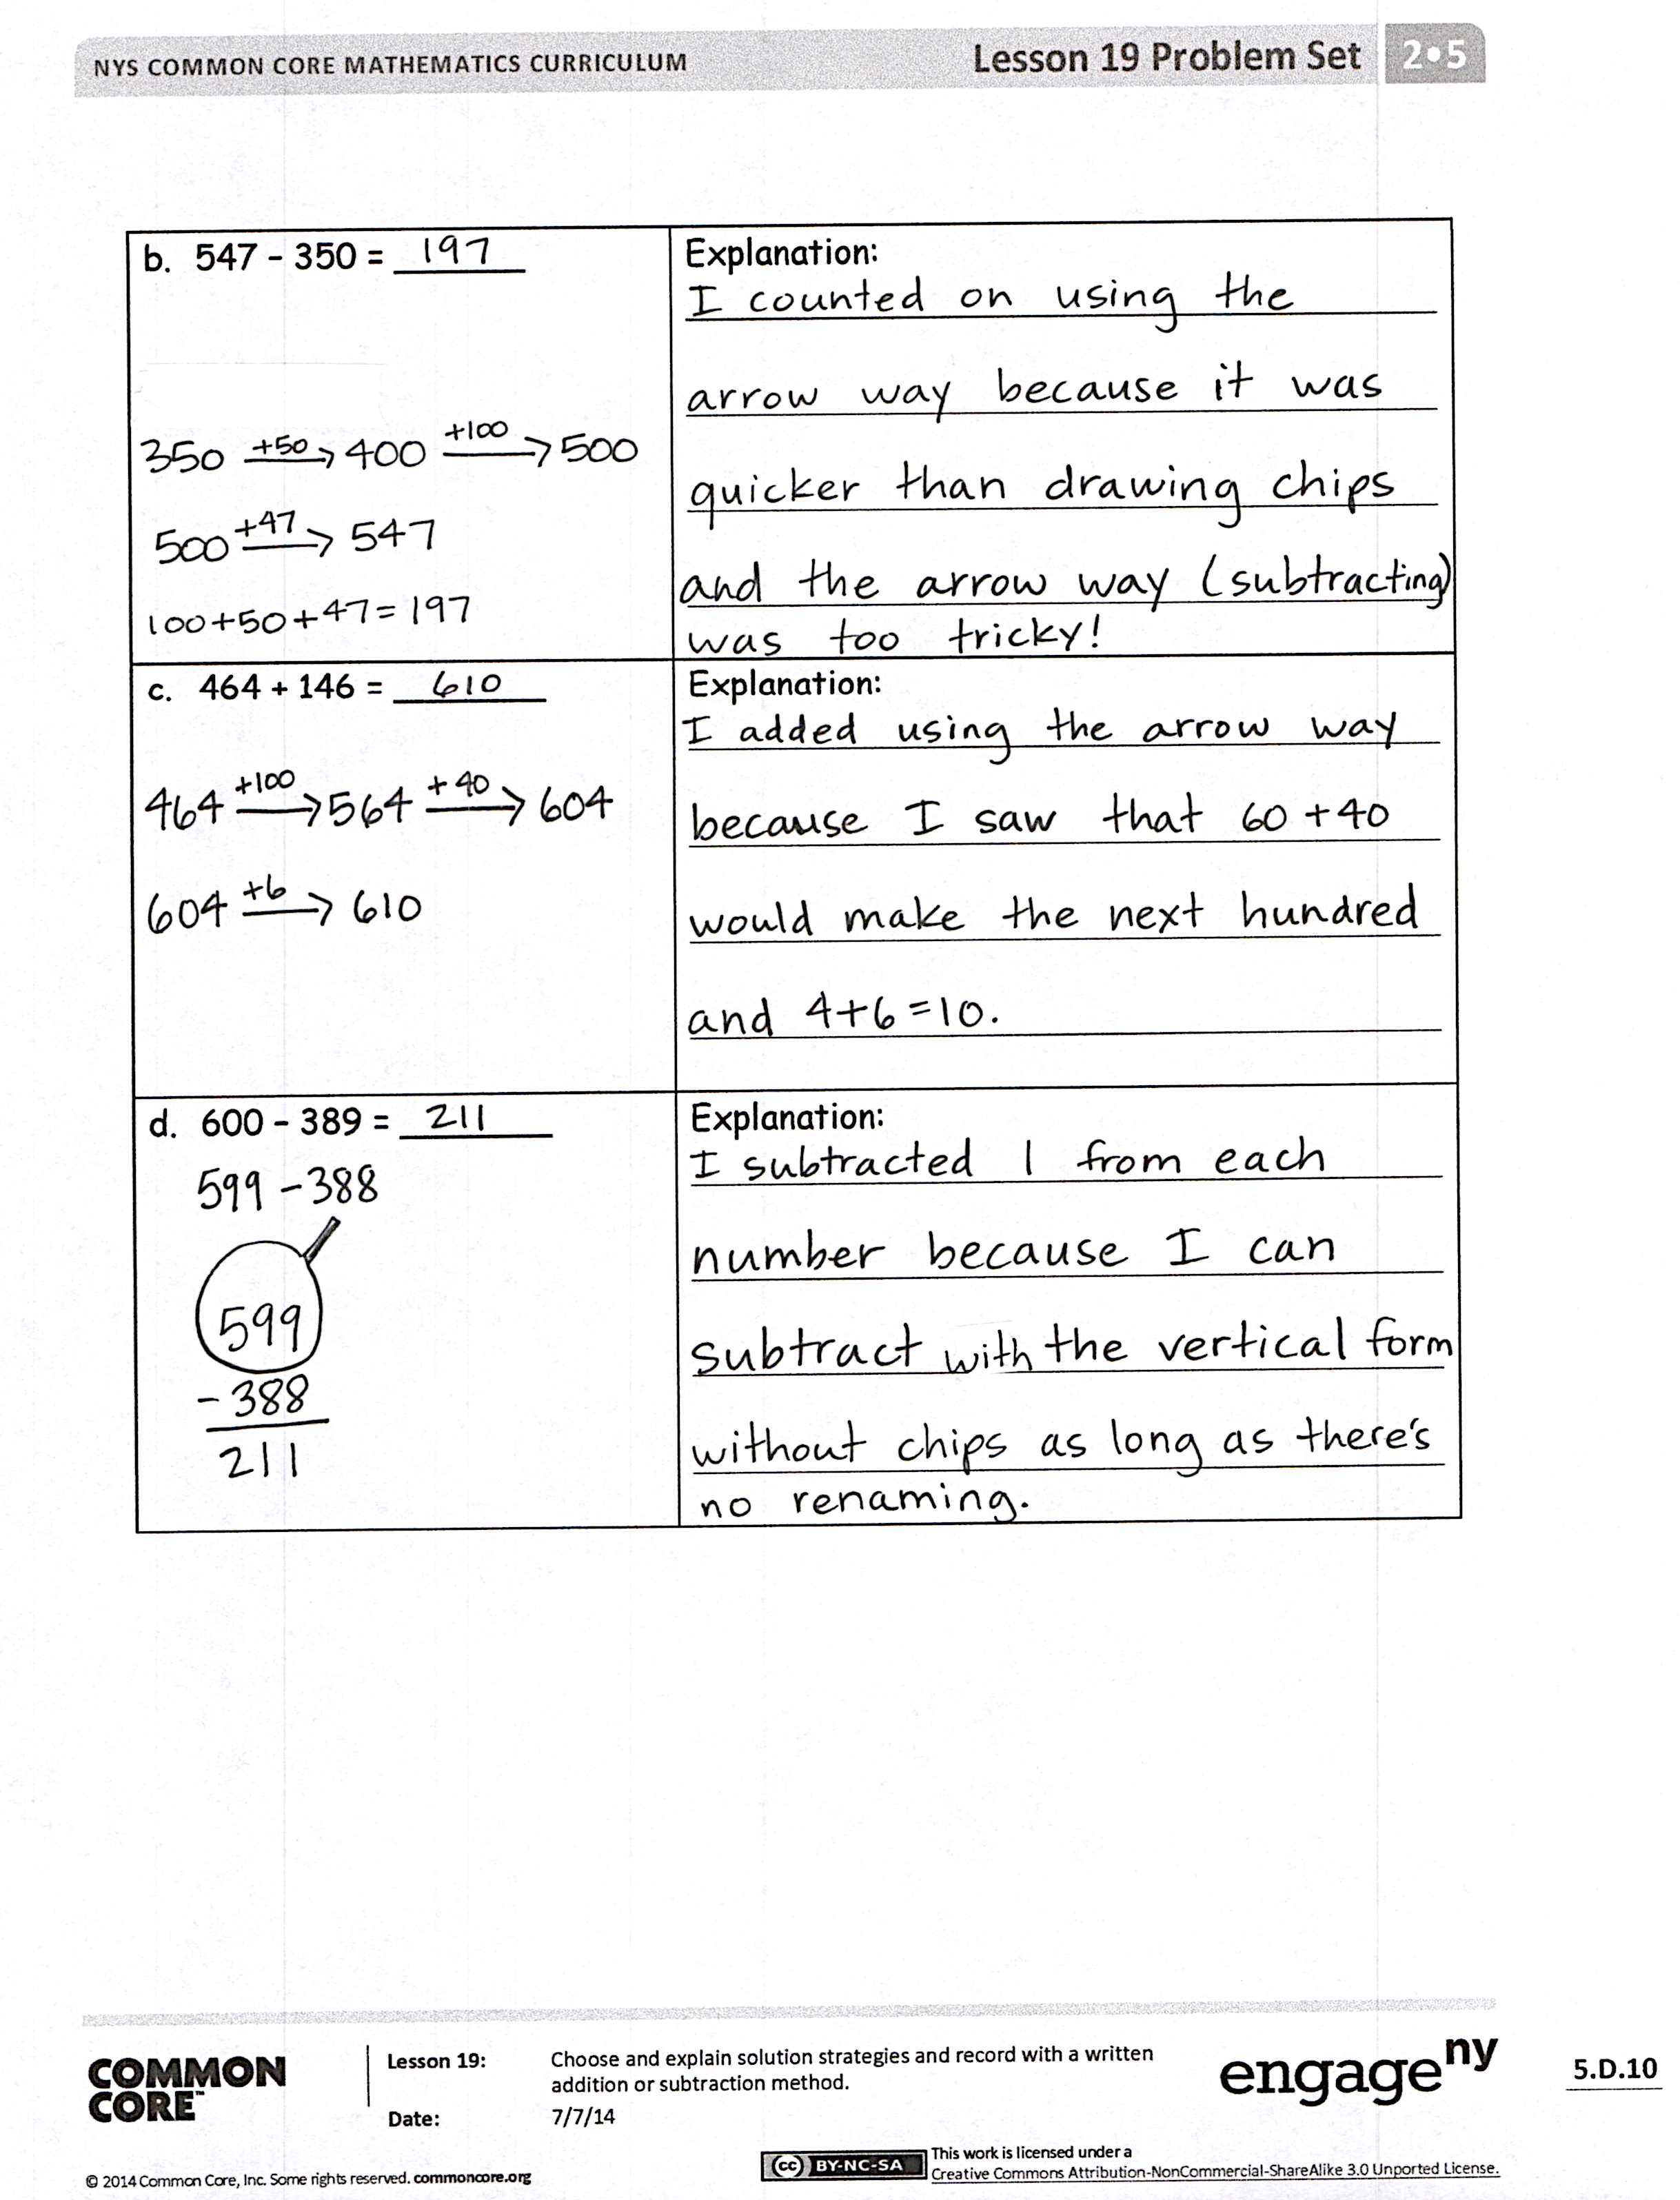 NYS COMMON CORE MATHEMATICS CURRICULUM
Lesson 19 Problem Set 2•5
b. 547 - 350 = 197
350 +50→ 400 +100→ 500
500 +47→ 547
100+50+47=197
Explanation:
I counted on using the
arrow way because it was
quicker than drawing chips
and the arrow way (subtracting)
was too tricky!
c. 464 + 146 = 610
464 +100→ 564 +40→ 604
604 +6→ 610
Explanation:
I added using the arrow way
because I saw that 60+40
would make the next hundred
and 4+6=10.
d. 600 - 389 = 211
599 - 388
599
- 388
211
Explanation:
I subtracted 1 from each
number because I can
subtract with the vertical form
without chips as long as there's
no renaming.
COMMON
CORE™
Lesson 19:
Choose and explain solution strategies and record with a written
addition or subtraction method.
Date:
7/7/14
engageny
5.D.10
© 2014 Common Core, Inc. Some rights reserved. commoncore.org
cc BY-NC-SA
This work is licensed under a
Creative Commons Attribution-NonCommercial-ShareAlike 3.0 Unported License.